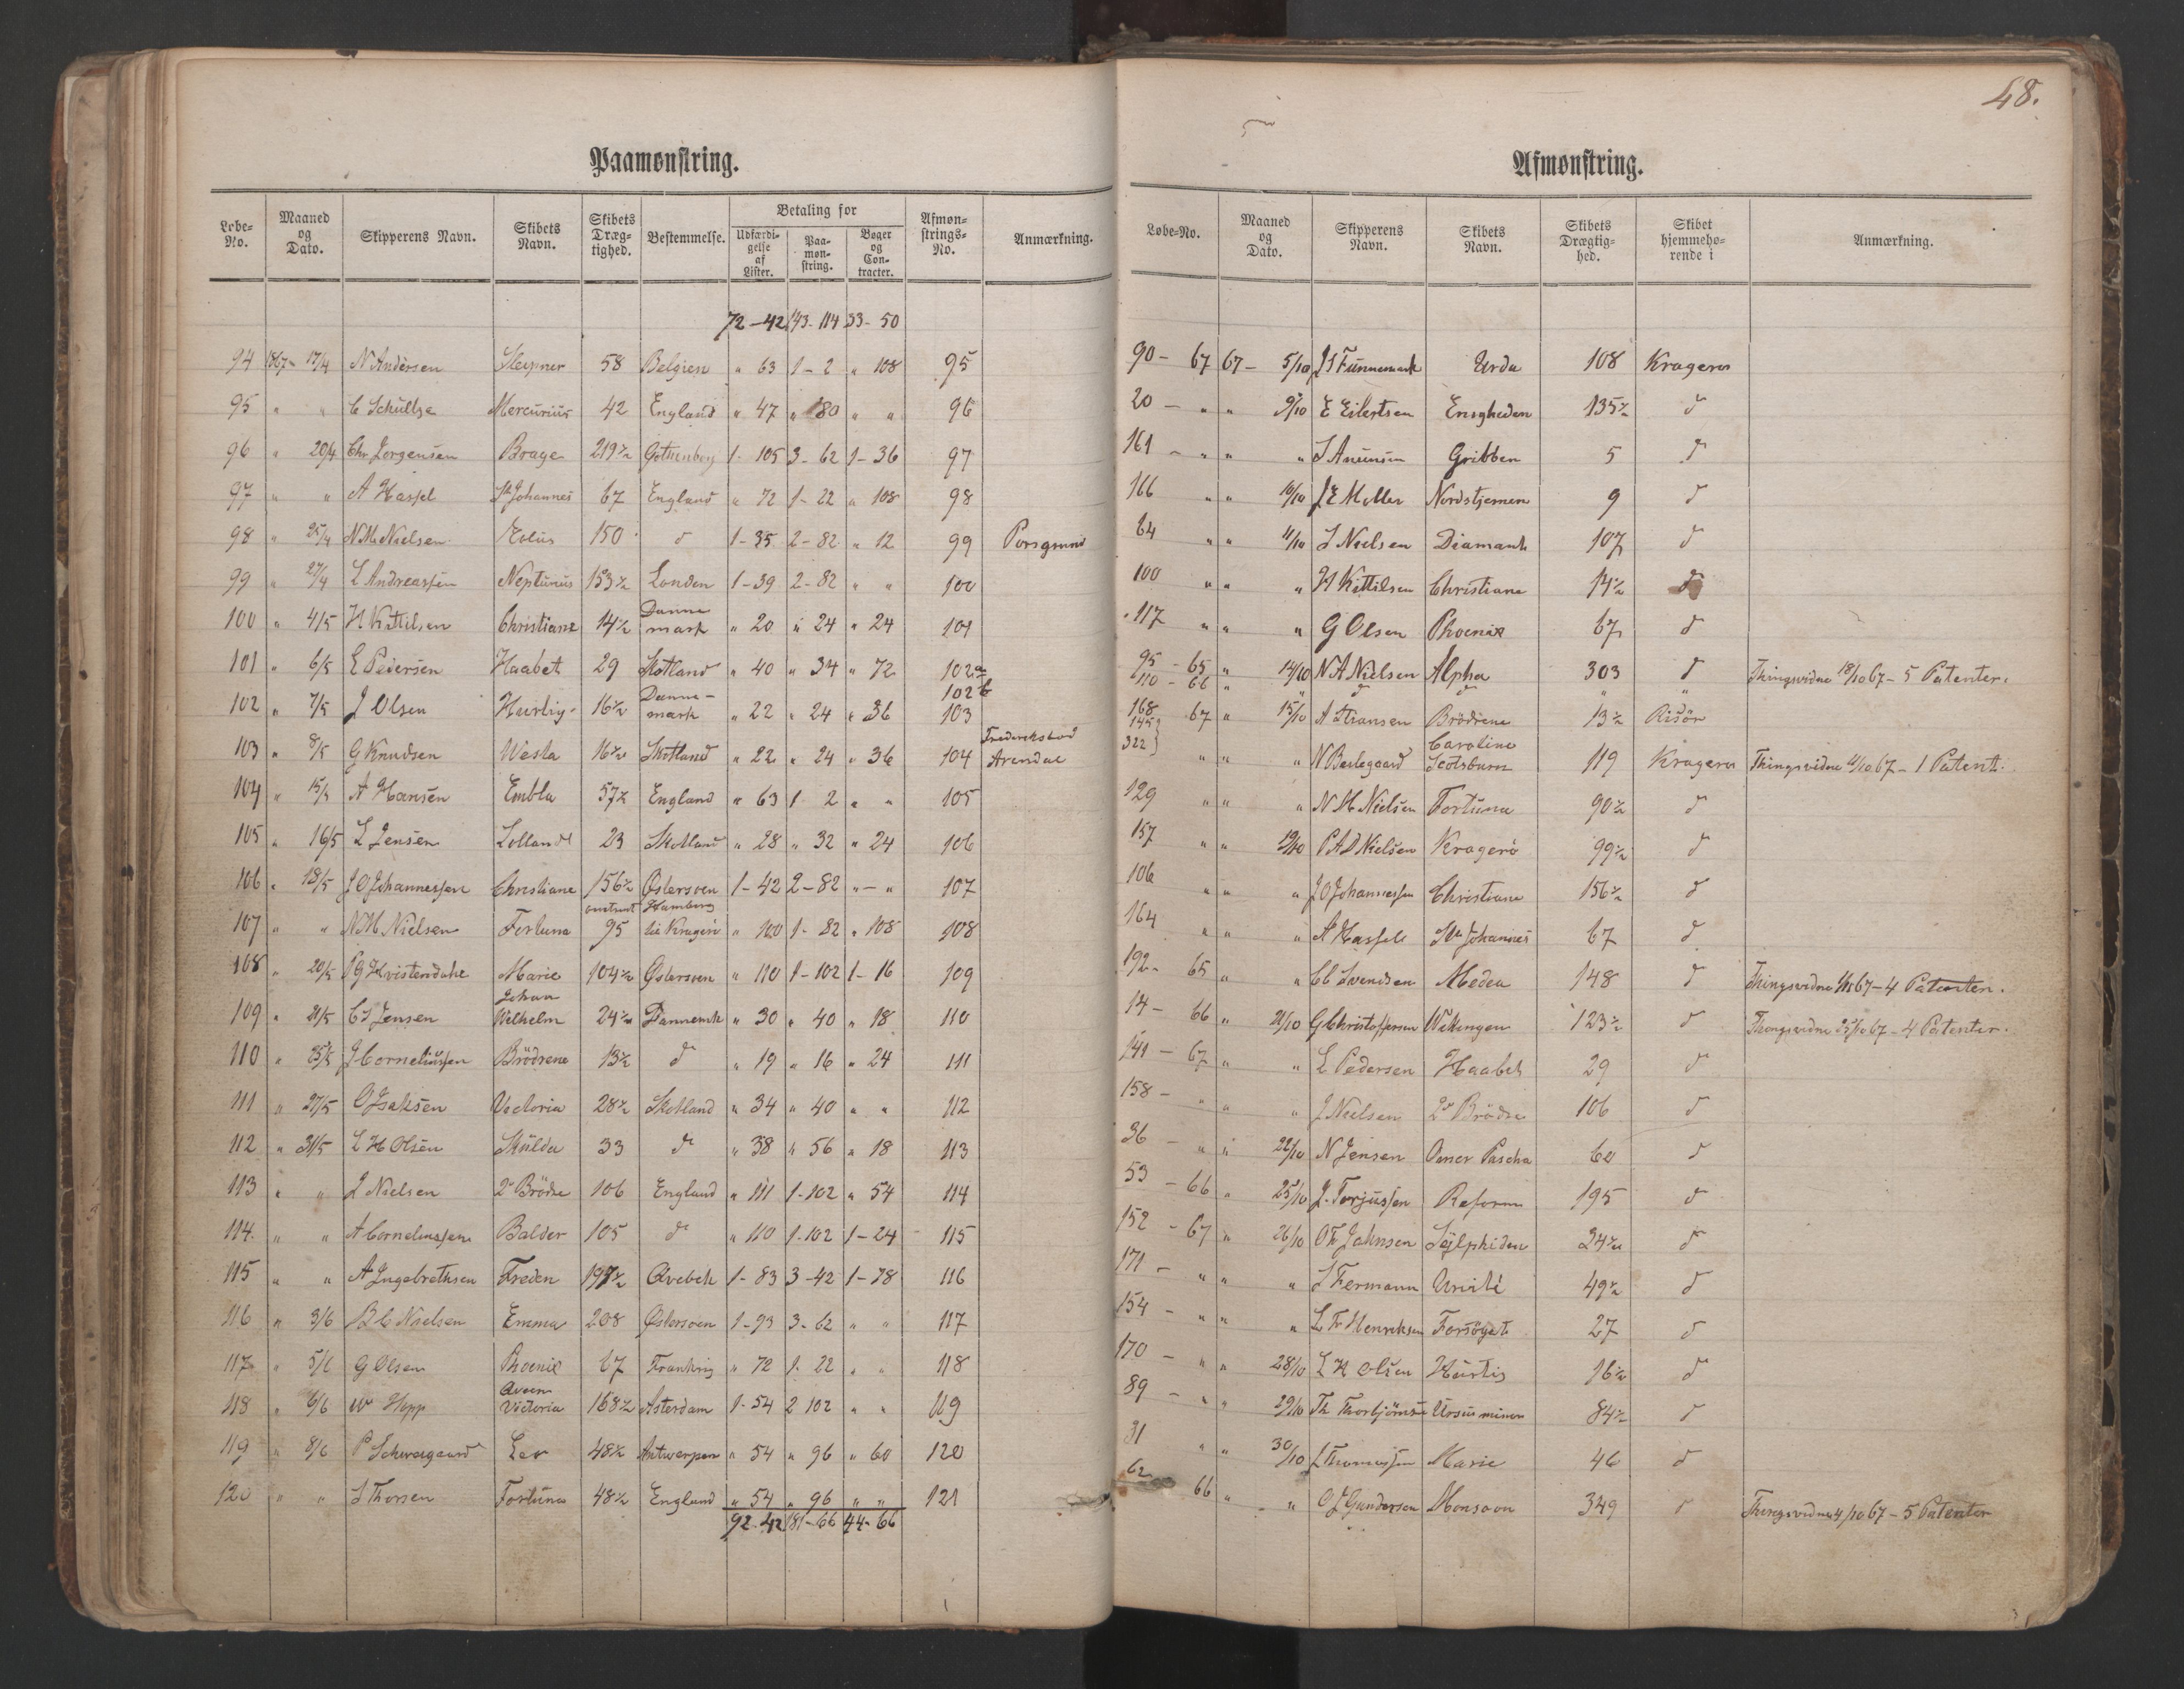 Paamønstring.
Løbe-No. | Maaned og Dato. | Skipperens Navn. | Skibets Navn. | Skibets Drægtighed. | Bestemmelse. | Betaling for Udfærdigelse af Lister. | Paamønstring. | Bøger og Contracter. | Afmønstrings-No. | Anmærkning.
72-42 143-114 33-50
94 1867- 17/4 N Andersen Sleipner 58 Belgien " 63 1-2 " 108 95
95 " " C Schultze Mercurius 42 England " 47 " 80 " " 96
96 " 20/4 Chr Jorgensen Brage 219½ Gothenborg 1-105 3-62 1-36 97
97 " " A Hassel St Johannes 67 England " 72 1-22 " 108 98
98 " 25/4 N M Nielsen Eolus 150 d 1-35 2-82 " 12 99 Porsgrund
99 " 27/4 L Andreassen Neptunus 153½ London 1-39 2-82 " " 100
100 " 4/5 H Kittilsen Christiane 14½ Dannemark " 20 " 24 " 24 101
101 " 6/5 E Pedersen Haabet 29 Skotland " 40 " 34 " 72 102a
102b
102 " 7/5 J Olsen Hurtig 16½ Dannemark " 22 " 24 " 36 103
103 " 8/5 G Knudsen Wesla 16½ Skotland " 22 " 24 " 36 104 Frederikstad Arendal
104 " 15/5 A Hansen Embla 57½ England " 63 1 2 " " 105
105 " 16/5 L Jensen Lolland 23 Skotland " 28 " 32 " 24 106
106 " 18/5 J O Johannessen Christiane 156½ Østersøen 1-42 2-82 "-" 107
107 " " N M Nielsen Fortuna 95 Hamborg Kragerö " 100 1-82 " 108 108
108 " 20/5 P G Kvistendahl Marie 104½ Østersøen " 110 1-102 1-16 109
109 " 21/5 C S Jensen Johan Wilhelm 24½ Dannemk " 30 " 40 " 18 110
110 " 25/5 J Corneliussen Brödrene 13½ d " 19 " 16 " 24 111
111 " 27/5 O Isaksen Victoria 28½ Skotland " 34 " 40 " " 112
112 " 31/5 L H Olsen Skulda 33 d " 38 " 56 " 18 113
113 " " J Nielsen 2de Brödre 106 England " 111 1-102 " 54 114
114 " " A Corneliussen Balder 105 d " 110 1-102 1-24 115
115 " " A Ingebrethsen Freden 197½ Qvebek 1-83 3-42 1-78 116
116 " 3/6 B C Nielsen Emma 208 Østersøen 1-93 3-62 " " 117
117 " 5/6 G Olsen Phoenix 67 Frankrig " 72 1-22 " " 118
118 " 6/6 W Hopp Qveen Victoria 168½ Asterdam 1-54 2 102 " " 119
119 " 8/6 P Schweigaard Leo 48½ Antwerpen " 54 " 96 " 60 120
120 " " S Thorsen Fortuna 48½ England " 54 " 96 " " 121
92-42 181-66 44-66
48.
Afmønstring.
Løbe-No. | Maaned og Dato. | Skipperens Navn. | Skibets Navn. | Skibets Drægtighed. | Skibet hjemmehørende i | Anmærkning.
90-67 67- 5/10 J S Funnemark Urda 108 Kragerø
20- " " 9/10 E Eilertsen Enigheden 135½ d
161- " " " Gribben 5 d
166 " " 10/10 J E Moller Nordstjernen 9 d
64 " " 11/10 S Nielsen Diamant 107 d
100 " " " H Kittilsen Christiane 14½ d
117 " " " G Olsen Phoenix 67 d
95-65 " 14/10 N A Nielsen Alpha 303 d Thingsvidne 18/10 67 - 5 Patenter.
110-66 " " d d " "
168 67 " 15/10 A Hansen Brödrene 13½ Risör
145
322 " " " N Beslegaard Caroline Scotsburn 119 Kragerø Thingsvidne 21/10 67 - 1 Patent.
129 " " " N M Nielsen Fortuna 90½ d
157 " " 19/10 P A D Nielsen Kragerö 99½ d
106 " " " J O Johannessen Christiane 156½ d
164 " " " A Hassel St Johannes 67 d
192-65 " " C C Svendsen Medea 148 d Thingsvidne 67-4 Patenter.
14-66 " 21/10 G Christophersen Wikingen 123½ d Thingsvidne 25/10 67 - 4 Patenter.
141-67 " " E Pedersen Haabet 29 d
158- " " " J Nielsen 2de Brödre 106 d
36- " " 22/10 N Jensen Omer Pascha 60 d
53-66 " 25/10 J. Torjussen Reform 195 d
152-67 " 26/10 O T Jahnsen Sylphiden 24½ d
171- " " " S Fermann Unité 49½ d
154- " " " L Fr Henriksen Forsöget 27 d
170- " " 28/10 L H Olsen Hurtig 16½ d
89- " " 29/10 Th Thorbjörnsen Ursus minor 84½ d
31 " " 30/10 J Thomassen Marie 46 d
62 66 " " O J Gundersen Monsoon 349 d Thingsvidne 4/10 67 - 5 Patenter